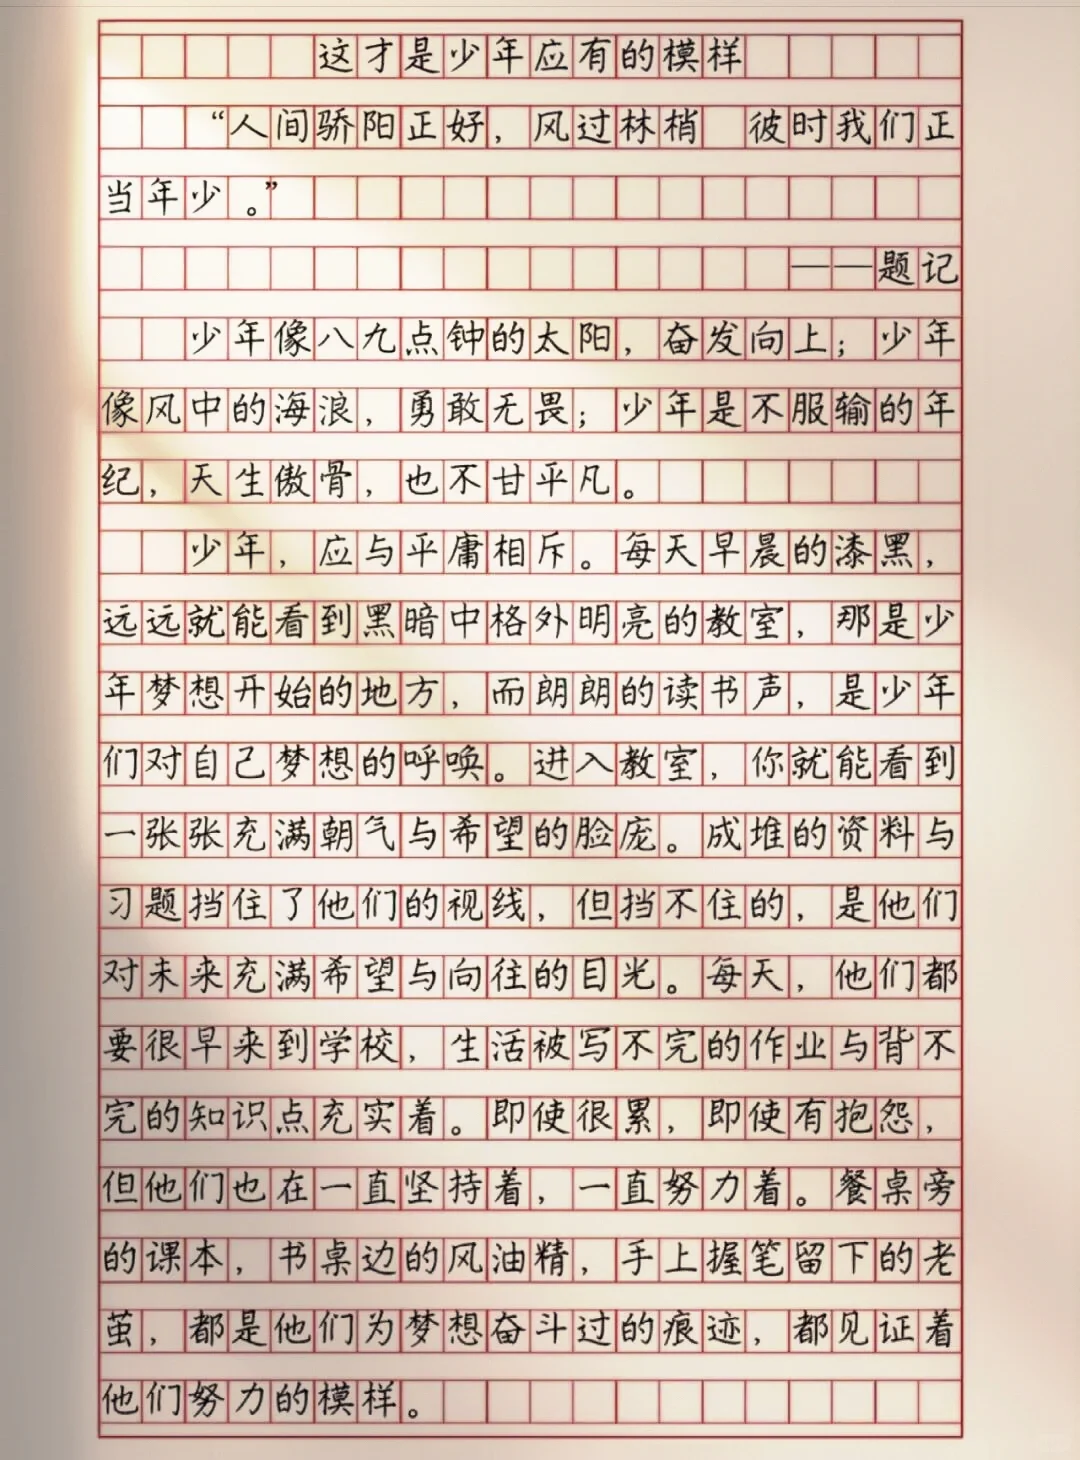 这才是少年应有的模样
“人间骄阳正好，风过林梢 彼时我们正
当年少。”
——题记
少年像八九点钟的太阳，奋发向上；少年
像风中的海浪，勇敢无畏；少年是不服输的年
纪，天生傲骨，也不甘平凡。
少年，应与平庸相斥。每天早晨的漆黑，
远远就能看到黑暗中格外明亮的教室，那是少
年梦想开始的地方，而朗朗的读书声，是少年
们对自己梦想的呼唤。进入教室，你就能看到
一张张充满朝气与希望的脸庞。成堆的资料与
习题挡住了他们的视线，但挡不住的，是他们
对未来充满希望与向往的目光。每天，他们都
要很早来到学校，生活被写不完的作业与背不
完的知识点充实着。即使很累，即使有抱怨，
但他们也在一直坚持着，一直努力着。餐桌旁
的课本，书桌边的风油精，手上握笔留下的老
茧，都是他们为梦想奋斗过的痕迹，都见证着
他们努力的模样。